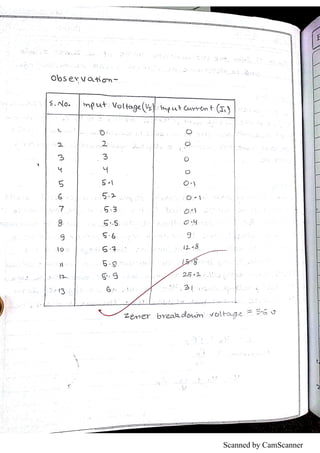 Observation-
S.No. Input Voltage(V₂) Input Current (I₁)
1 0 0
2 2 0
3 3 0
4 4 0
5 5.1 0.1
6 5.2 0.1
7 5.3 0.1
8 5.5 0.4
9 5.6 9
10 5.7 12.8
11 5.8 15.8
12 5.9 25.2
13 6 31
Zener breakdown voltage = 5.5 v
Scanned by CamScanner